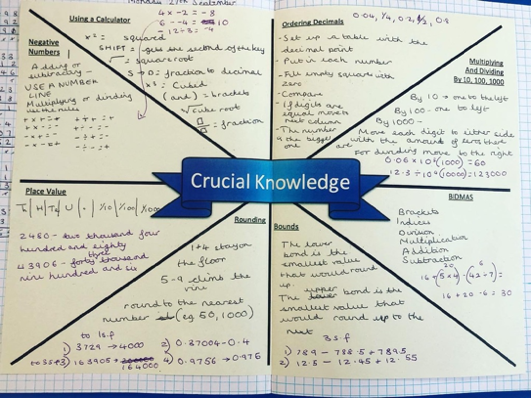 Monday 27th September
Using a Calculator
x² = squared
SHIFT - gets the second of the key
√ = square root
S→D = fraction to decimal
x³ = cubed
( and ) = brackets
∛ cube root
= fraction
4 × -2 = -8
6 - -4 = 10
-12 ÷ 3 = -4
Negative
Numbers
Adding or
subtracting -
USE A NUMBER
LINE
Multiplying or dividing
use the rules
+ × + = +
+ × - = -
- × + = -
- × - = +
+ ÷ + = +
+ ÷ - = -
- ÷ + = -
- ÷ - = +
Ordering Decimals
0.04, 1/4, 0.2, 1/3, 0.8
- Set up a table with the
decimal point
- Put in each number
- Fill empty squares with
zero
- Compare
- If digits are
equal move to
next column
- The number
is the biggest
one
Multiplying
And Dividing
By 10, 100, 1000
By 10 → one to the left
By 100 - one to left
By 1000 -
Move each digit to either side
with the amount of zeros there
are
For dividing move to the right
0.06 × 10³ (1000) = 60
Crucial Knowledge
Place Value
Th | H | T | U | . | 1/10 | 1/100 | 1/1000
2480 - two thousand four
hundred and eighty
three
43906 - forty thousand
nine hundred and six
Rounding
1→4 stay on
the floor
5-9 climb the
vine
round to the nearest
number (eg 50, 1000)
to 1s.f
1) 3729 → 4000
2) 0.37004 - 0.4
to 3sf 3) 163905 → 164000
4) 0.9756 → 0.976
Bounds
The lower
bond is the
smallest value
that would round
up.
The upper bond is the
smallest value that
would round up to the
next
3 s.f
1) 789 - 788.5 + 789.5
2) 12.5 - 12.45 + 12.55
BIDMAS
Brackets
Indices
Division
Multiplication
Addition
Subtraction
20 6
16 + (5×4) - (42÷7) =
16 + 20 - 6 = 30